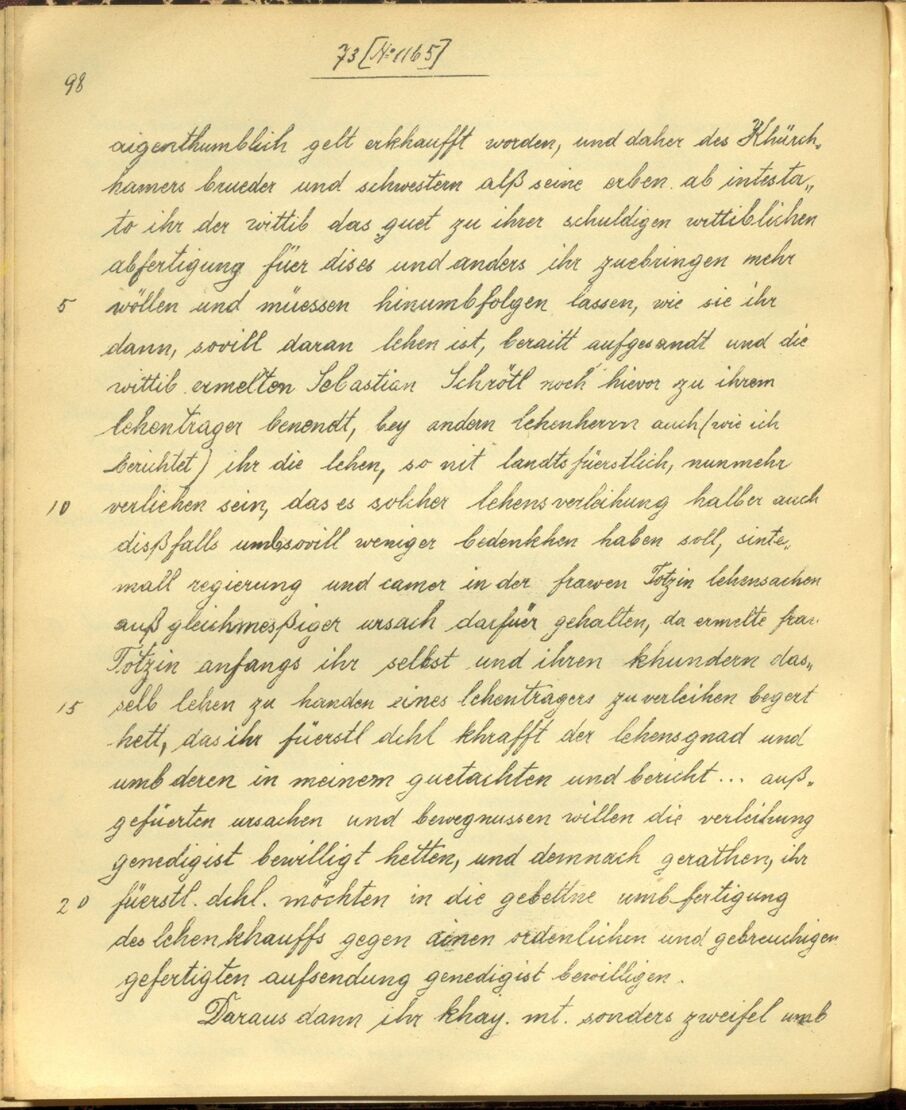 73 [No 1165]
98
aigenthumblich gelt erkhaufft worden, und daher des Khürch„
hamers brueder und schwestern alß seine erben ab intesta„
to ihr der wittib das guet zu ihrer schuldigen wittiblichen
abfertigung füer dises und anders ihr zuebringen mehr
5 wöllen und müessen hinumbfolgen lassen, wie sie ihr
dann, sovill daran lehen ist, beraitt aufgesandt und die
wittib ermelten Sebastian Schrötl noch hievor zu ihrem
lehentrager benendt, bey andern lehenherrn auch (wie ich
berichtet) ihr die lehen, so nit landtsfüerstlich, nunmehr
10 verliehen sein, das es solcher lehensverleihung halber auch
dißfalls umbsovill weniger bedenkhen haben soll, sinte„
mall regierung und camer in der frawen Tötzin lehensachen
auß gleichmeßiger ursach darfüer gehalten, da ermelte frau
Tötzin anfangs ihr selbst und ihren khundern das„
15 selb lehen zu handen eines lehentragers zuverleihen begert
hett, das ihr füerstl dchl khrafft der lehensgnad und
umb deren in meinem guetachten und bericht ... auß„
gefüerten ursachen und bewegnussen willen die verleihung
genedigist bewilligt hetten, und demnach gerathen, ihr
20 füerstl. dchl. möchten in die gebettne umbfertigung
des lehenkhauffs gegen ainen ordenlichen und gebreuchigen
gefertigten aufsendung genedigist bewilligen.
Daraus dann ihr khay. mt. sonders zweifel umb